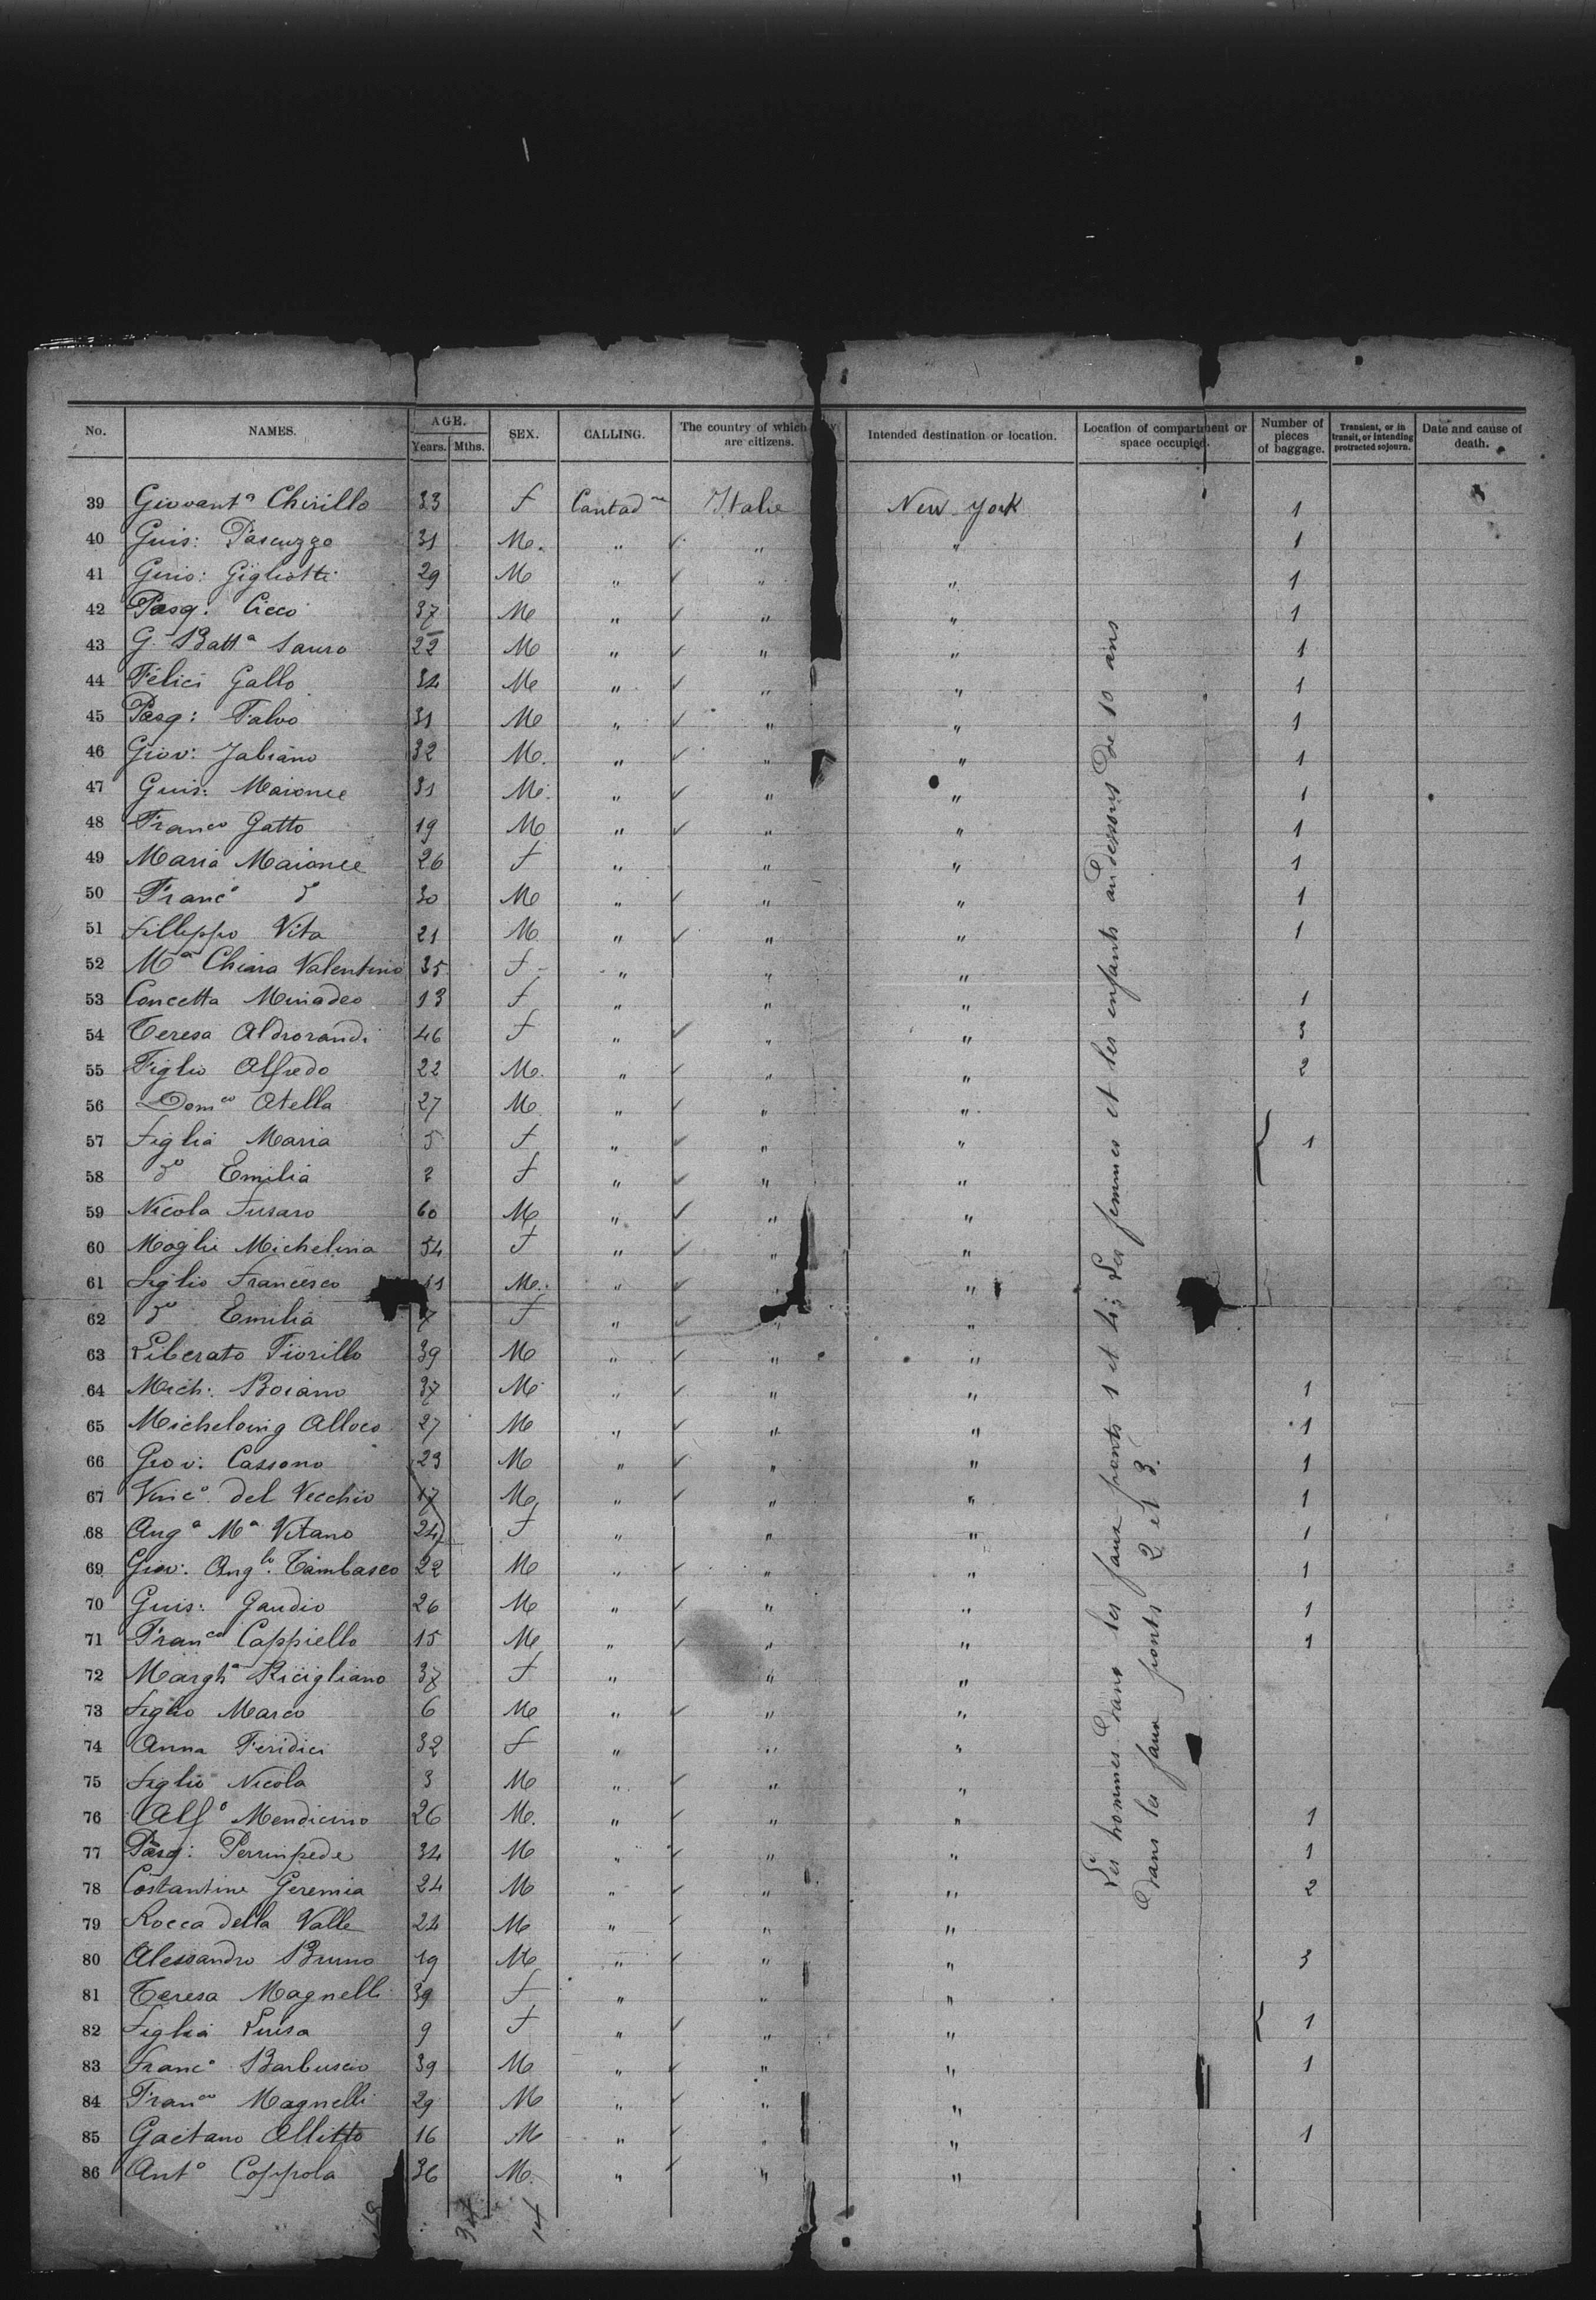 No. NAMES. AGE. Years. Mths. SEX. CALLING. The country of which are citizens. Intended destination or location. Location of compartment or space occupied. Number of pieces of baggage. Transient, or in transit, or intending protracted sojourn. Date and cause of death.
39 Giovant.a Chirillo 33 f Contad.ne Italie New York 1
40 Guis: Pascuzzo 31 M. " " " 1
41 Gerio: Gigliotti 29 M " " " 1
42 Pasq. Cicco 37 M " " " 1
43 G. Batt.a Sauro 22 M " " " 1
44 Felici Gallo 34 M " " " 1
45 Pasq: Talvo 31 M " " " 1
46 Giov: Fabiano 32 M. " " " 1
47 Guis: Maionce 31 M. " " " 1
48 Franco Gatto 19 M " " " 1
49 Maria Maionce 26 f " " " 1
50 Franc.o do 30 M " " " 1
51 Filleppo Vita 21 M " " " 1
52 M.a Chiara Valentino 35 f " " "
53 Concetta Minadeo 13 f " " " 1
54 Teresa Aldrorandi 46 f " " " 3
55 Figlio Alfredo 22 M. " " " 2
56 Dom.co Otella 27 M " " "
57 Figlia Maria 5 f " " " 1
58 do Emilia 2 f " " "
59 Nicola Fusaro 60 M " " "
60 Moglie Michelina 54 f " " "
61 Figlio Francesco 11 M. " " "
62 do Emilia 7 f " " "
63 Liberato Fiorillo 39 M " " "
64 Mich: Boiano 37 M " " " 1
65 Micheloing Alloco 27 M " " " 1
66 Giov: Cassono 23 M " " " 1
67 Vinc.o del Vecchio 17 M " " " 1
68 Ang.a M.a Vitano 24 f " " " 1
69 Giov: Ang.lo Tambasco 22 M " " " 1
70 Guis: Gaudio 26 M " " " 1
71 Fran.co Cappiello 15 M " " " 1
72 Margh.a Ricigliano 37 f " " "
73 Figlio Marco 6 M " " "
74 Anna Feridici 32 f " " "
75 Figlio Nicola 3 M " " "
76 Alf.o Mendicino 26 M. " " " 1
77 Pasq: Perrinpede 34 M " " " 1
78 Costantino Geremia 24 M " " " 2
79 Rocca della Valle 24 M " " "
80 Alessandro Bruno 19 M " " " 3
81 Teresa Magnelli 39 f " " "
82 Figlia Luisa 9 f " " " 1
83 Franc.o Barbuscio 39 M " " " 1
84 Fran.co Magnelli 29 M " " "
85 Gaetano Allitto 16 M " " " 1
86 Ant.o Coppola 36 M. " " "
Les hommes dans les faux ponts 1 et 4; Les femmes et les enfants au dessous de 10 ans
dans les faux ponts 2 et 3.
34 14